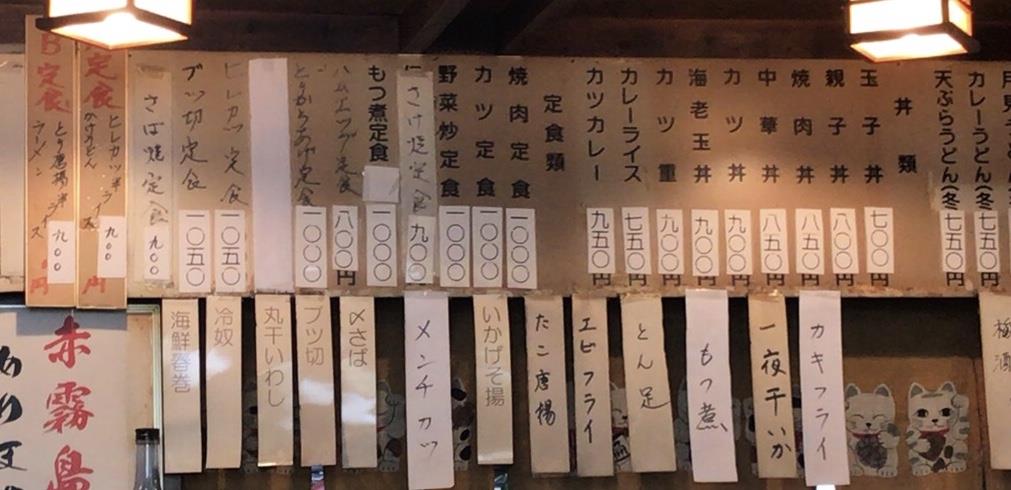 カレーうどん(冬 七五〇円
天ぷらうどん(冬 七五〇円
丼類
玉子丼 七〇〇円
親子丼 八〇〇円
焼肉丼 八五〇円
中華丼 八五〇円
カツ丼 九〇〇円
海老玉丼 九〇〇円
カツ重 九〇〇円
カレーライス 七五〇円
カツカレー 九五〇円
定食類
焼肉定食 一〇〇〇
カツ定食 一〇〇〇
野菜炒定食 一〇〇〇
さけ焼定食 九〇〇
もつ煮定食 一〇〇〇
ハムエッグ定食 八〇〇円
とりからあげ定食 一〇〇〇
ヒレカツ定食 一〇五〇
ブツ切定食 一〇五〇
さば焼定食 九〇〇
定食
ヒレカツ 半ライス
九〇〇
円
B定食
とり唐揚 半ライス
ラーメン
九〇〇
円
カキフライ
一夜干いか
もつ煮
とん足
エビフライ
たこ唐揚
いかげそ揚
メンチカツ
〆さば
ブツ切
丸干いわし
冷奴
海鮮春巻
赤霧島